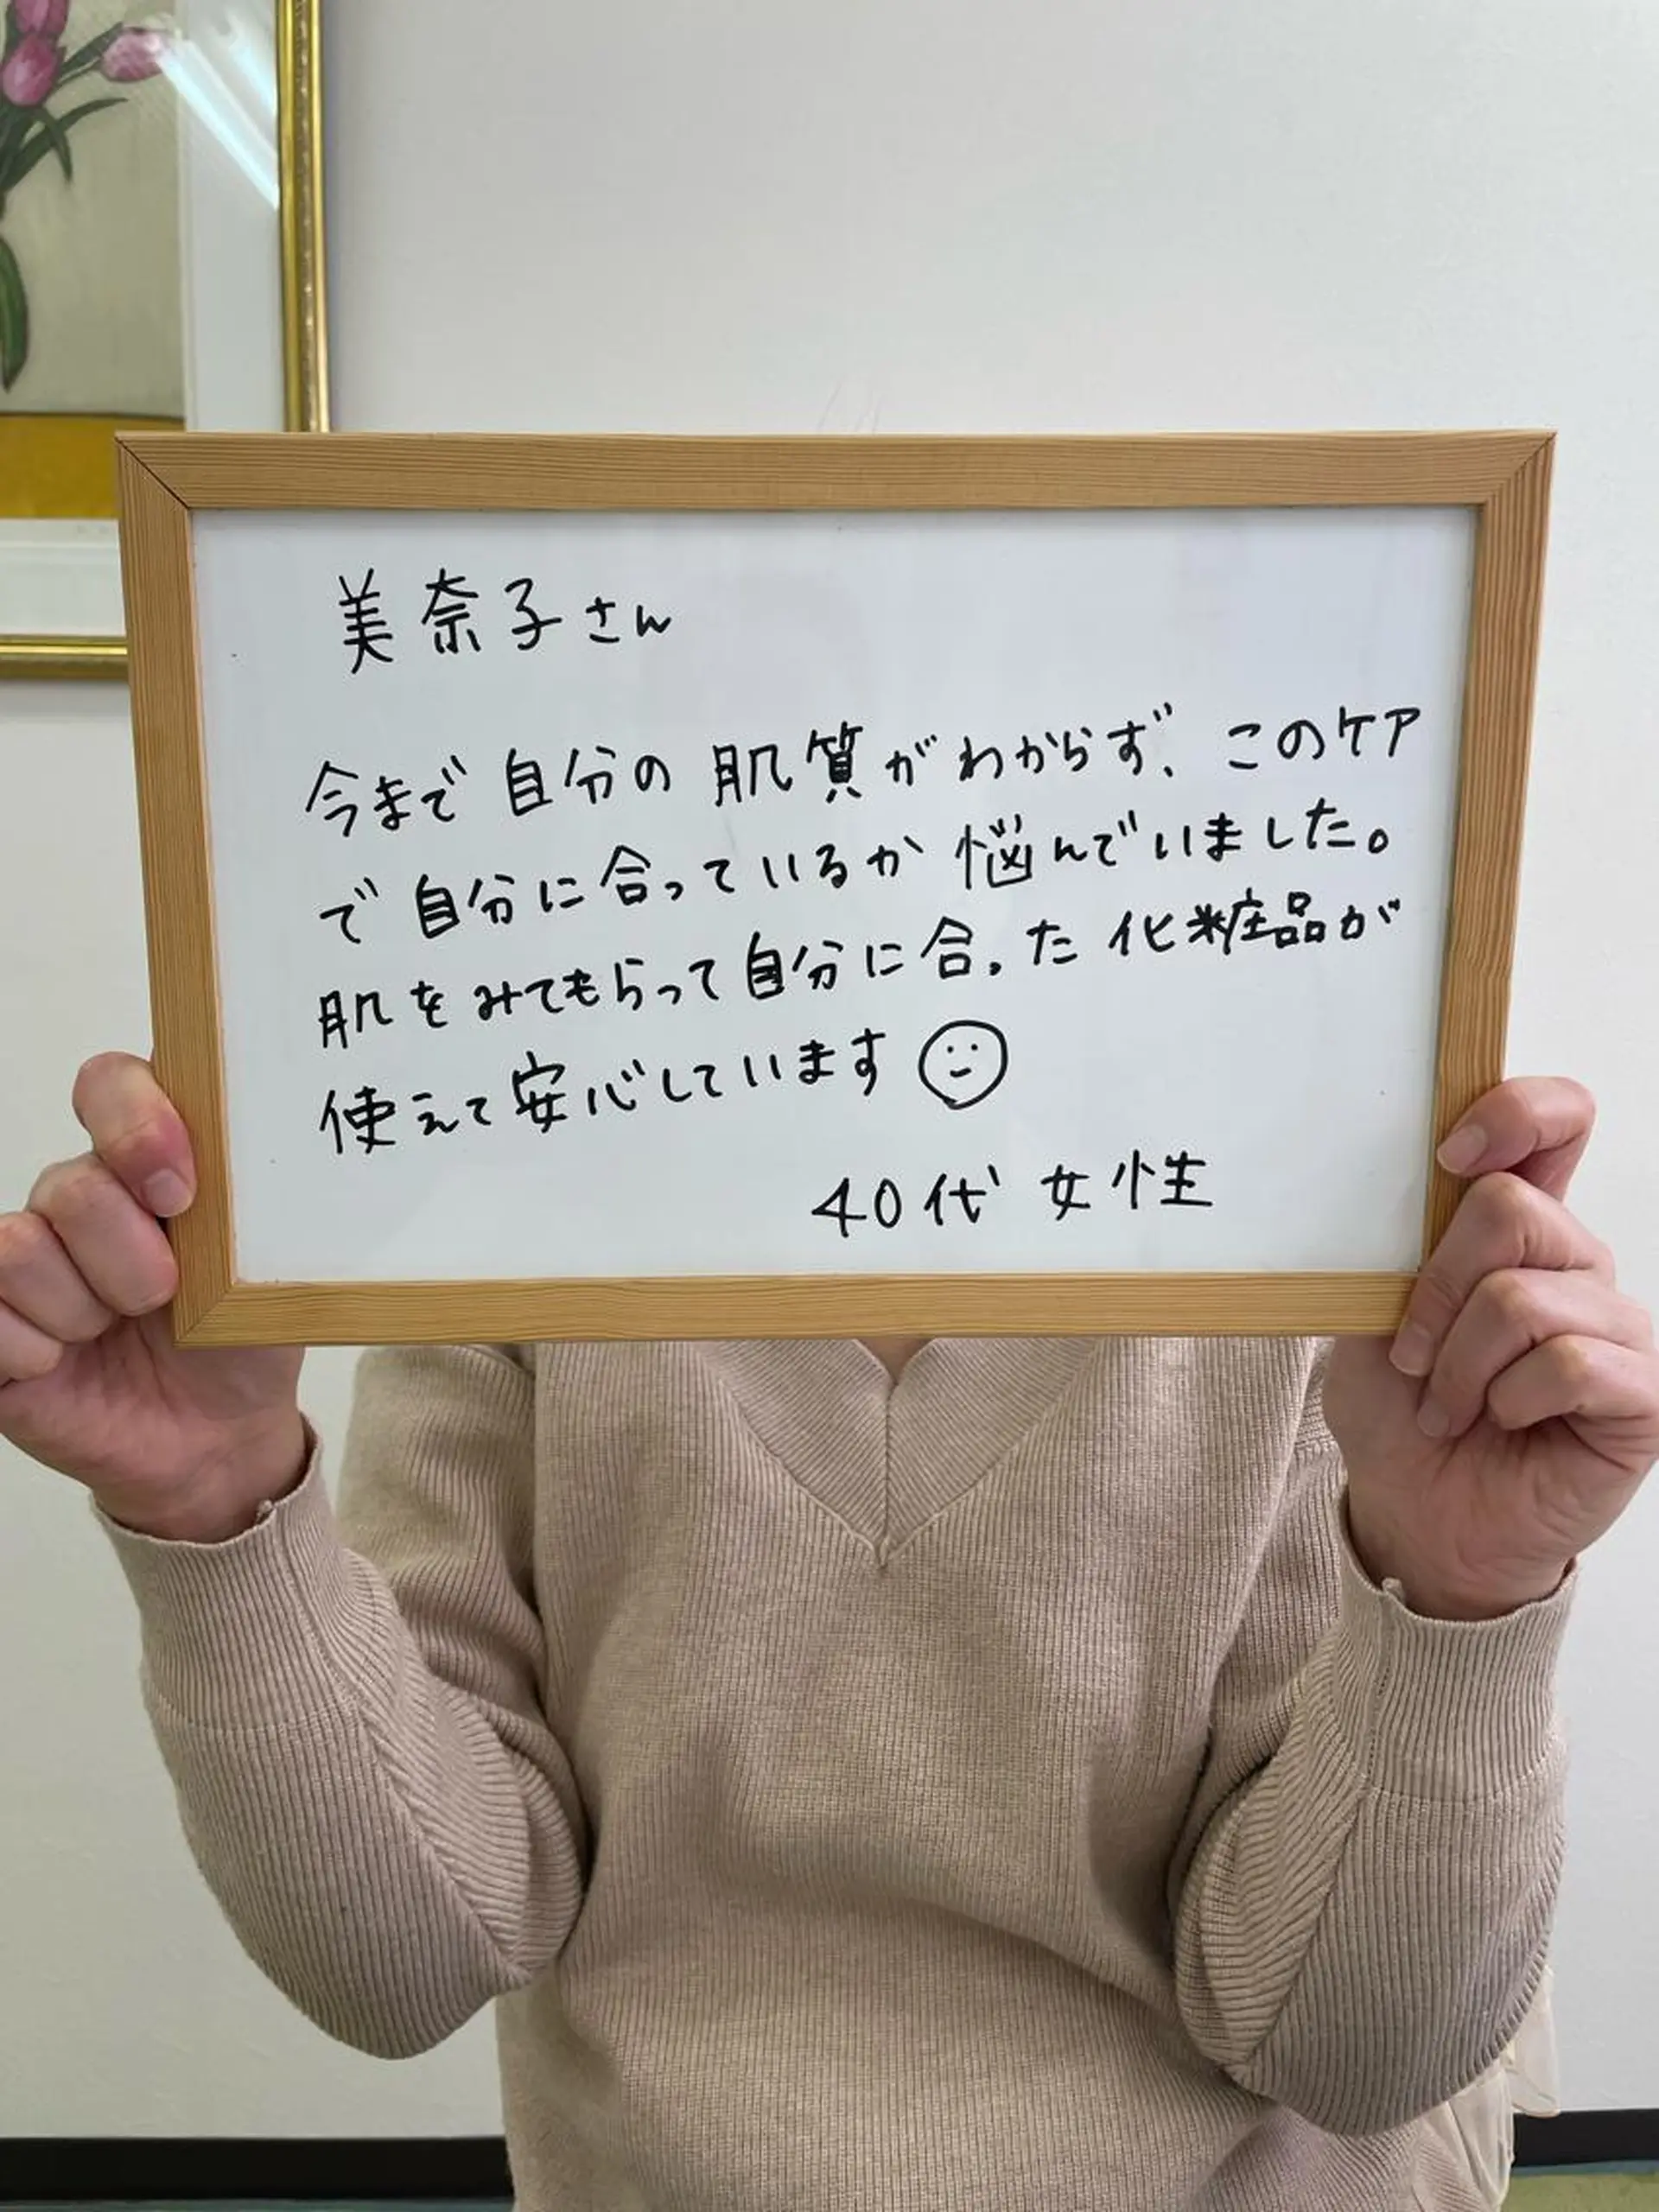 美奈子さん
今まで自分の肌質がわからず、このケア
で自分に合っているか悩んでいました。
肌をみてもらって自分に合った化粧品が
使えて安心しています
40代女性